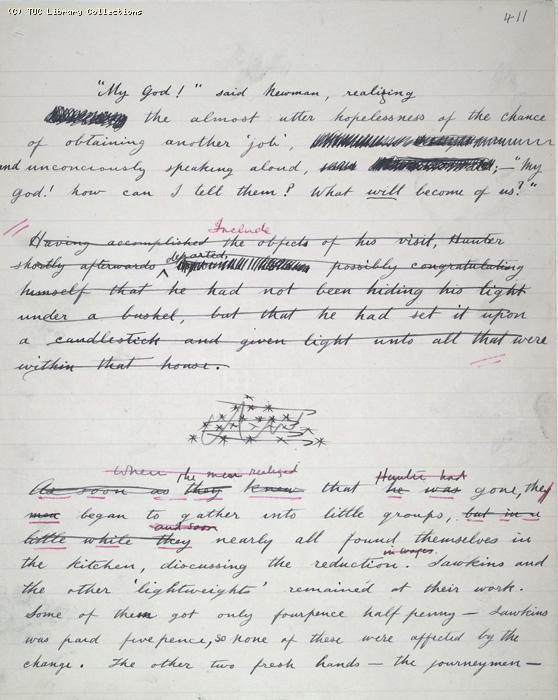 (C) TUC Library Collections
411
"My God!" said Newman, realizing
the almost utter hopelessness of the chance
of obtaining another 'job',
and unconciously speaking aloud, ;—"My
God! how can I tell them? What will become of us?"
Include
Having accomplished the objects of his visit, Hunter
shortly afterwards departed, possibly congratulating
himself that he had not been hiding his light
under a bushel, but that he had set it upon
a candlestick and given light unto all that were
within that house.
When the men realized Hunter had
As soon as they knew that he was gone, they
men began to gather into little groups, but in a
and soon
little while they nearly all found themselves in
the kitchen, discussing the reduction. Sawkins and
in wages
the other 'lightweights' remained at their work.
Some of them got only fourpence half penny — Sawkins
was paid fivepence, so none of these were affected by the
change. The other two fresh hands — the journeymen —